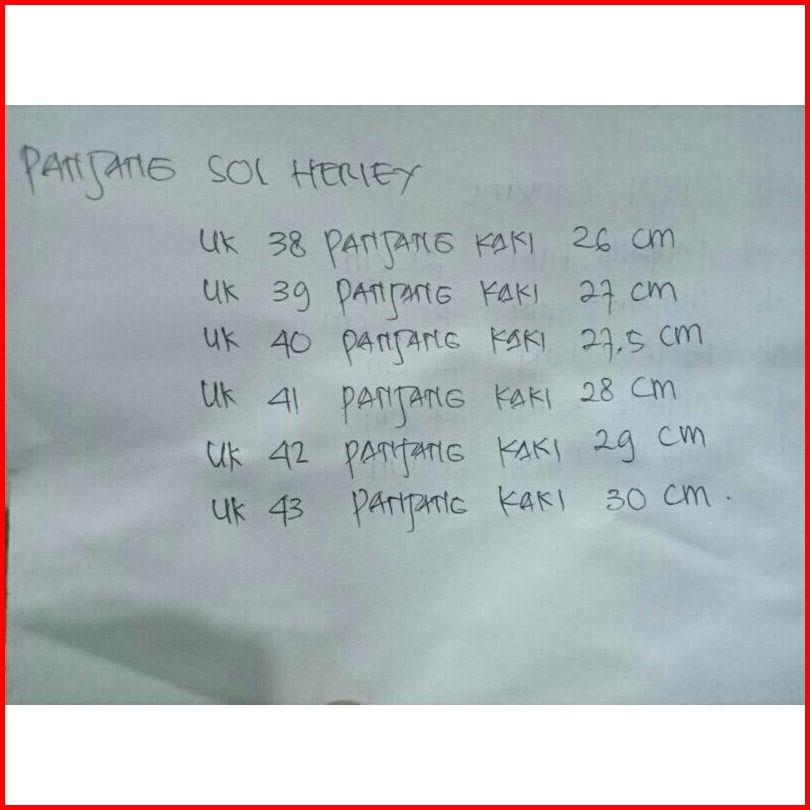 PANJANG SOL HERLEY
UK 38 PANJANG KAKI 26 cm
UK 39 PANJANG KAKI 27 cm
UK 40 PANJANG KAKI 27,5 cm
UK 41 PANJANG KAKI 28 cm
UK 42 PANJANG KAKI 29 cm
UK 43 PANJANG KAKI 30 cm.